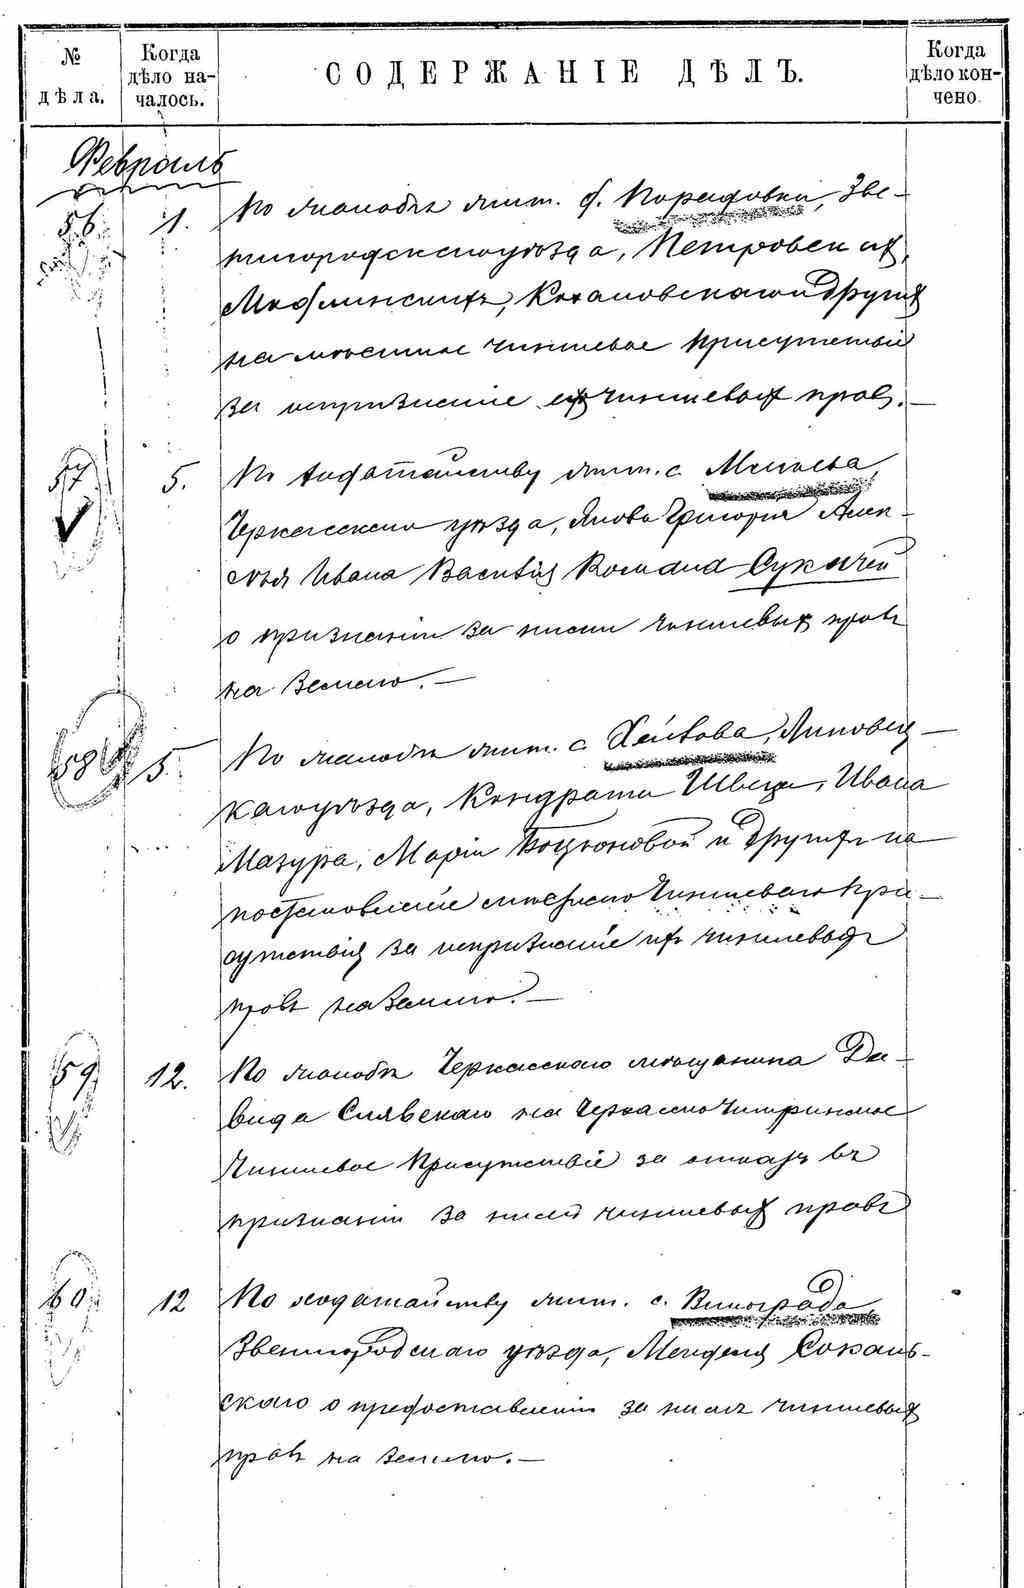 № дѣла.
Когда дѣло на-
чалось.
СОДЕРЖАНІЕ ДѢЛЪ.
Когда дѣло кон-
чено.
Февраль
56. 1. По жалобѣ жит. д. Зве-
нигородскаго уѣзда, Петровских,
Модлинскихъ, Кохановскаго и других
на мѣстное чиншевое присутствіе
за непризнаніе их чиншевых правъ.—
57 5. По ходатайству жит. с. Мошенска,
Черкасскаго уѣзда, Якова Григорія Алек-
сѣя Ивана Василія Романа Сукачей
о признаніи за ними чиншевых правъ
на землю.—
58 5. По жалобѣ жит. с. Хейлова, Липовец-
каго уѣзда, Кондрата Швеца, Ивана
Мазура, Маріи Боцюновой и другихъ на
постановленіе мѣстнаго Чиншеваго При-
сутствія за непризнаніе ихъ чиншевыхъ
правъ на землю.—
59 12. По жалобѣ Черкасскаго мѣщанина Да-
вида Слявскаго на Черкасско Чигиринское
Чиншевое Присутствіе за отказъ въ
признаніи за нимъ чиншевых правъ
60. 12 По ходатайству жит. с. Винограда,
Звенигородскаго уѣзда, Менделя Сокаль-
скаго о предоставленіи за нимъ чиншевых
правъ на землю.—